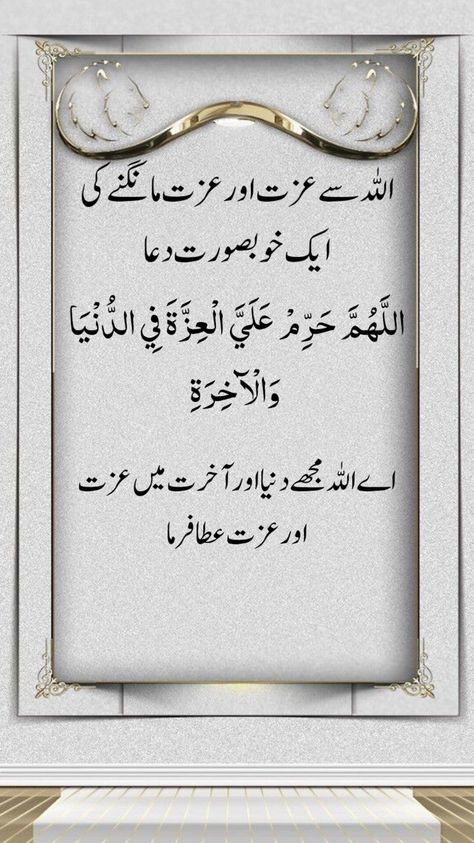 اللہ سے عزت اور عزت مانگنے کی
ایک خوبصورت دعا
اللَّهُمَّ حَرِّمْ عَلَيَّ الْعِزَّةَ فِي الدُّنْيَا
وَالْآخِرَةِ
اے اللہ مجھے دنیا اور آخرت میں عزت
اور عزت عطا فرما